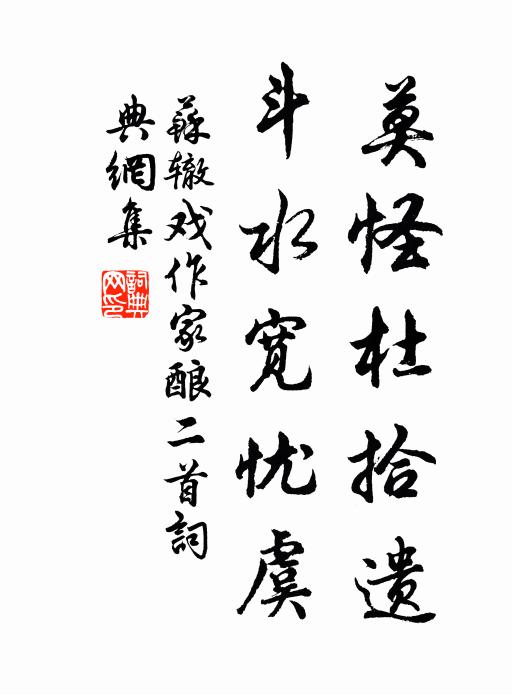 莫怪杜拾遗
斗水宽忧虞
蘇辙戏作家酿二首詞
典網集
詞典网印